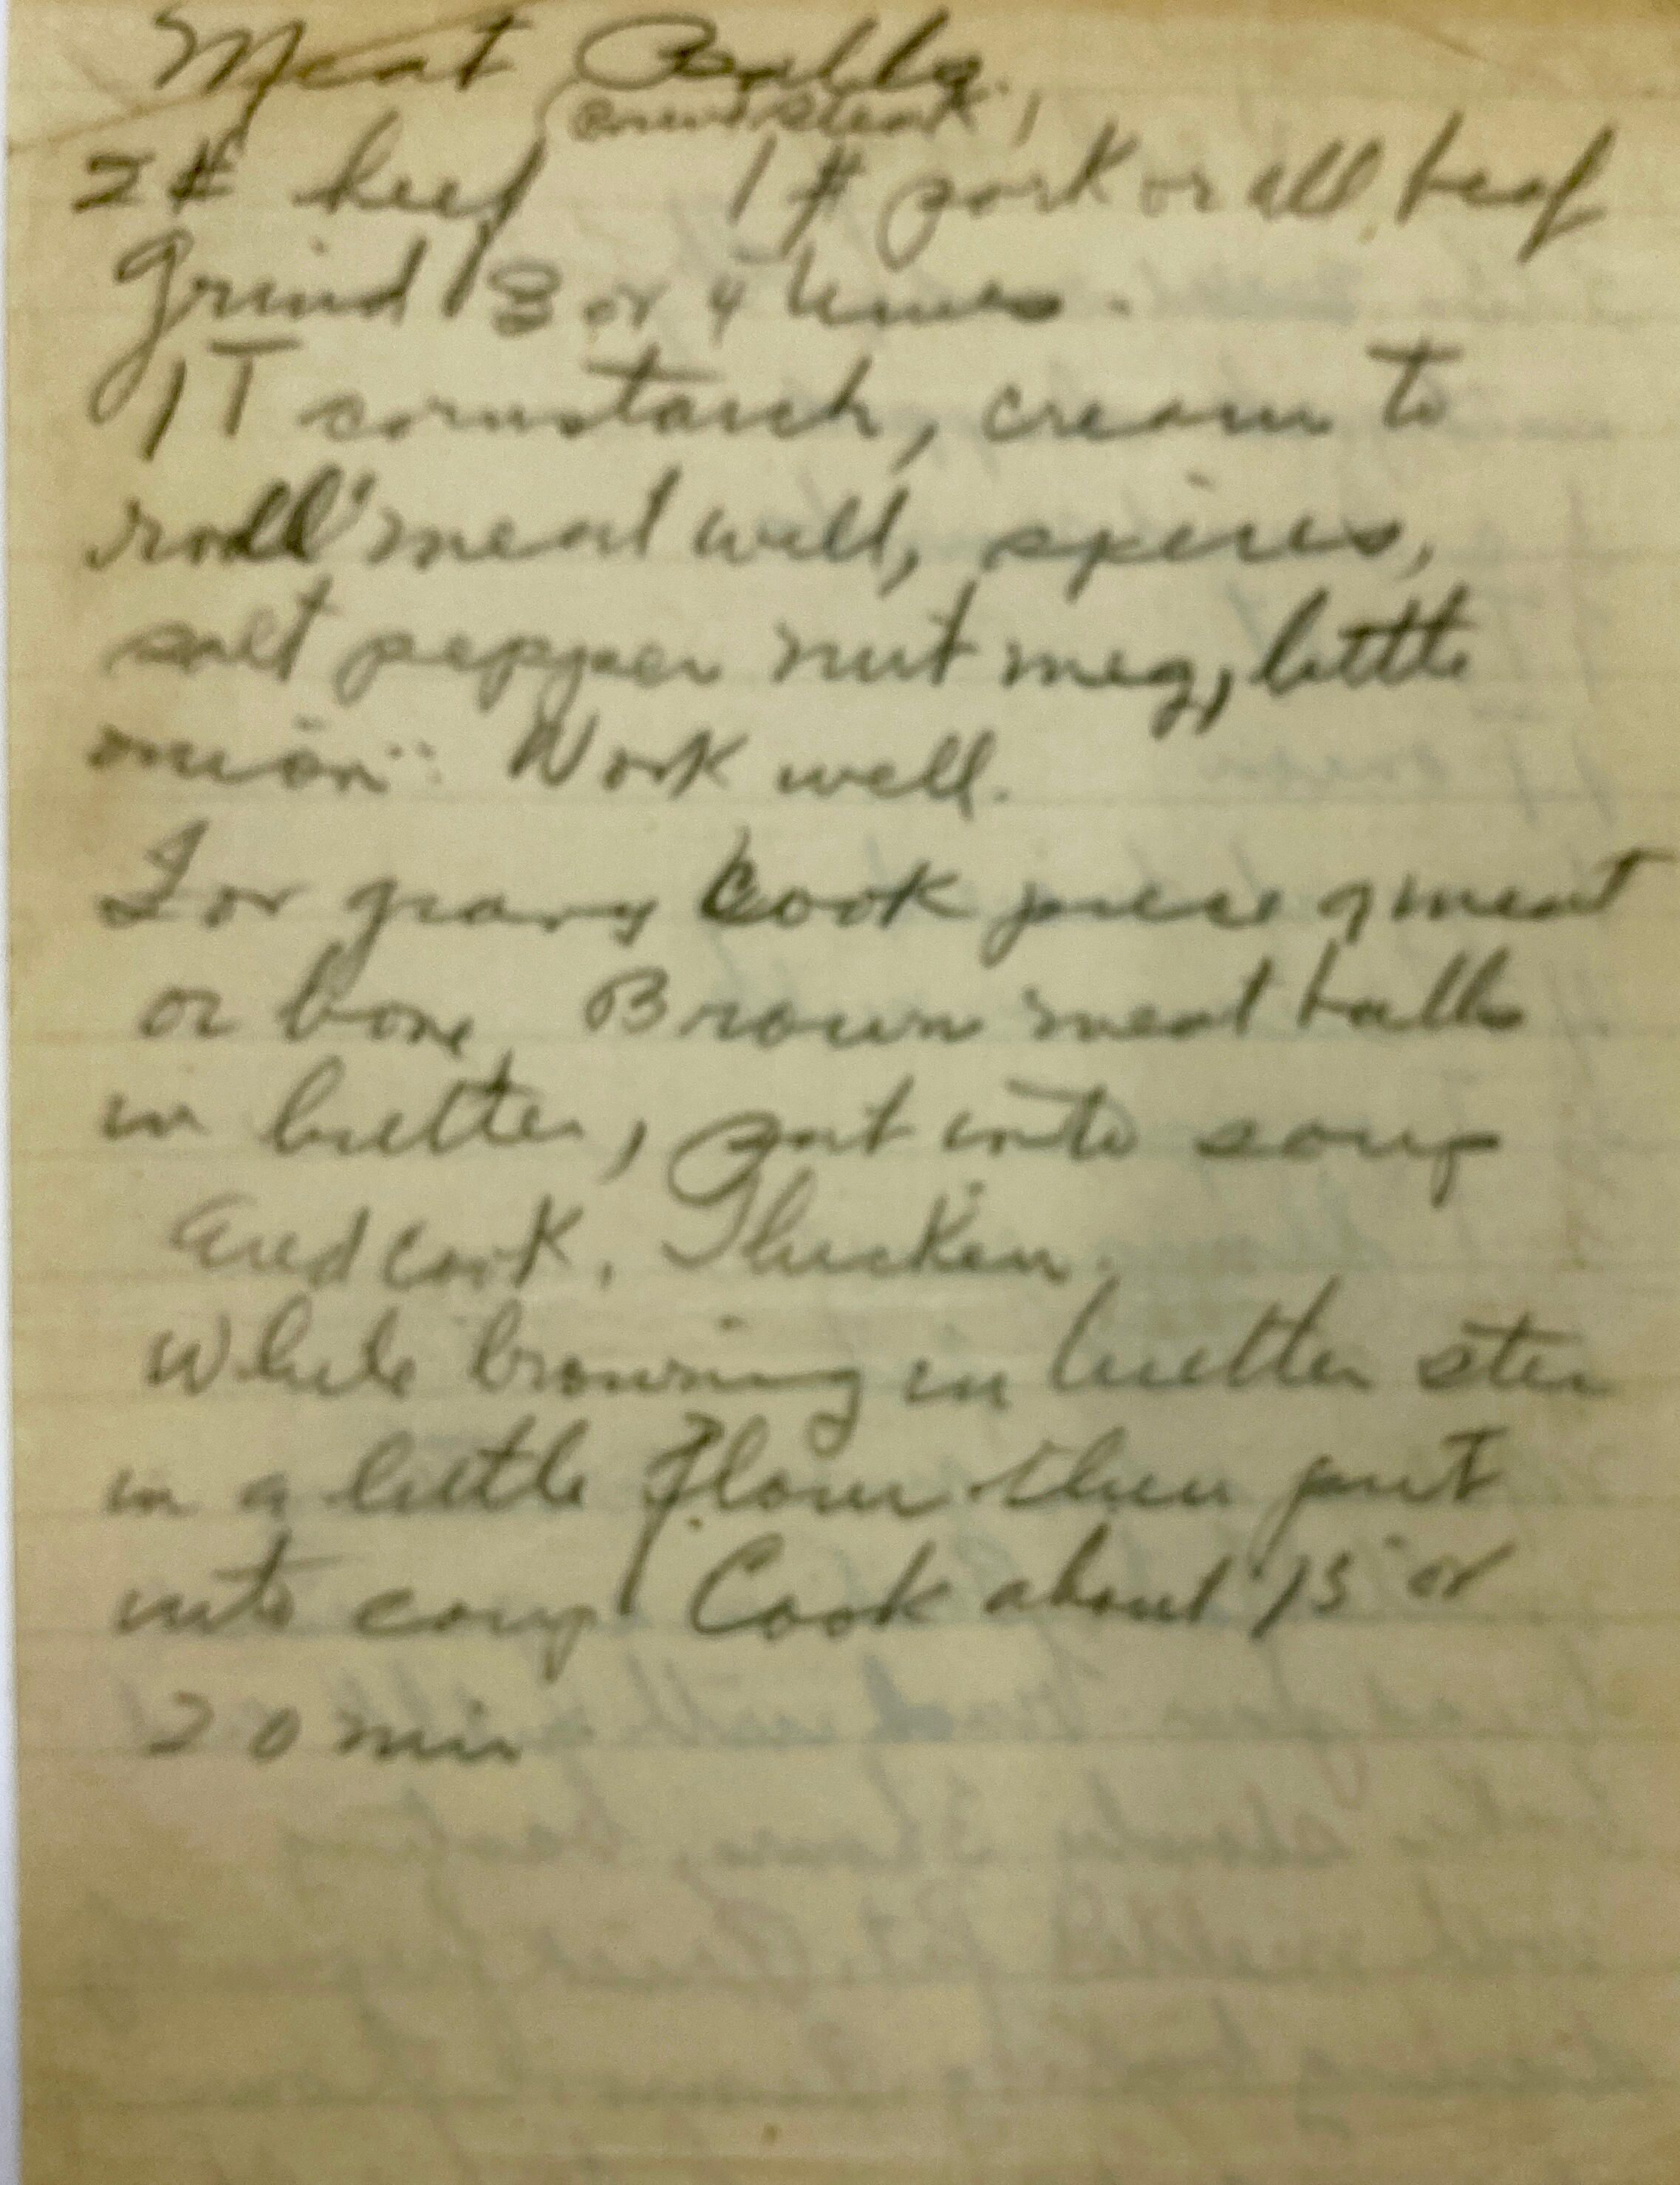 Meat Balls.
(round steak)
2# beef 1# pork or all beef
Grind 3 or 4 times.
1 T cornstarch, cream to
roll meat well, spices,
salt pepper nut meg, little
onion. Work well.
For gravy Cook piece of meat
or bone Brown meat balls
in butter, put into soup
and cook. Thicken.
While browning in butter stir
in a little flour then put
into soup Cook about 15 or
20 min